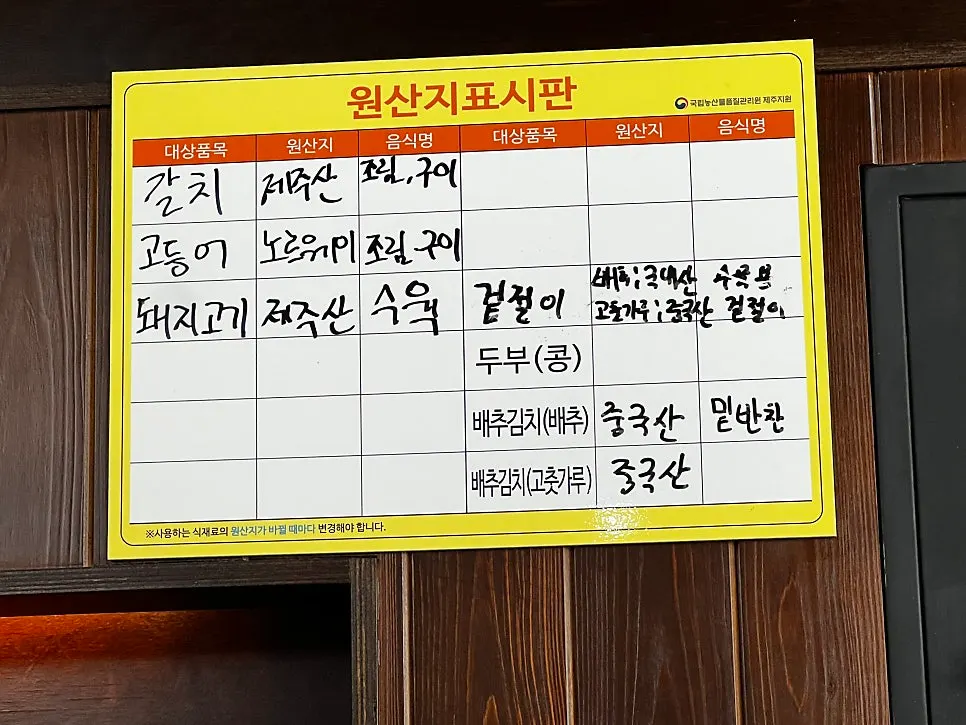 원산지표시판
국립농산물품질관리원 제주지원
대상품목 원산지 음식명 대상품목 원산지 음식명
갈치 제주산 조림,구이
고등어 노르웨이 조림 구이
돼지고기 제주산 수육 겉절이 배추;국내산
고춧가루;중국산 겉절이
두부(콩)
배추김치(배추) 중국산 밑반찬
배추김치(고춧가루) 중국산
※사용하는 식재료의 원산지가 바뀔 때마다 변경해야 합니다.